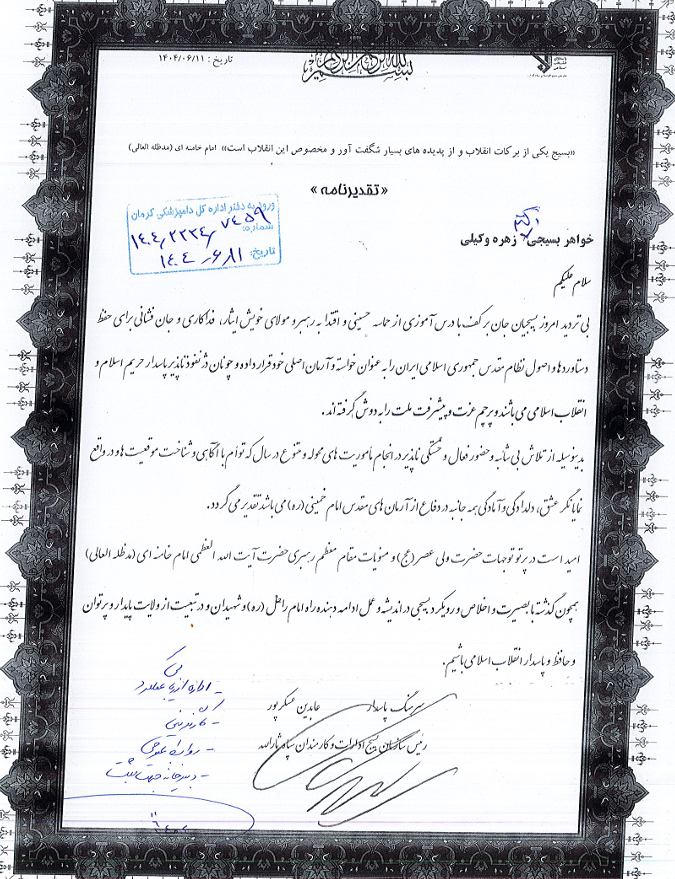 بسم الله الرحمن الرحیم
تاریخ : ۱۴۰۴/۰۶/۱۱
«بسیج یکی از برکات انقلاب و از پدیده های بسیار شگفت آور و مخصوص این انقلاب است» امام خامنه ای (مدظله العالی)
«تقدیرنامه»
ورود به دفتر اداره کل دامپزشکی کرمان
شماره: ۱۴۰۴/۲۲۲۴/۷۴۵۹
تاریخ:
خواهر بسیجی دکتر زهره وکیلی
سلام علیکم
بی تردید امروز بسیجیان جان بر کف با درس آموزی از حماسه حسینی و اقتدا به رهبر و مولای خویش ایثار، فداکاری و جان فشانی برای حفظ
دستاوردها و اصول نظام مقدس جمهوری اسلامی ایران را به عنوان خواسته و آرمان اصلی خود قرار داده و چونان دژ نفوذ ناپذیر پاسدار حریم اسلام و
انقلاب اسلامی می باشند و پرچم عزت و پیشرفت ملت را به دوش گرفته اند.
بدینوسیله از تلاش بی شائبه و حضور فعال و خستگی ناپذیر در انجام مأموریت های محوله و متنوع در سال که توأم با آگاهی و شناخت موقعیت ها و در واقع
نمایانگر عشق، دلدادگی و آمادگی همه جانبه در دفاع از آرمان های مقدس امام خمینی (ره) می باشد تقدیر می گردد.
امید است در پرتو توجهات حضرت ولی عصر (عج) و منویات مقام معظم رهبری حضرت آیت الله العظمی امام خامنه ای (مدظله العالی)
همچون گذشته با بصیرت و اخلاص و رویکرد بسیجی در اندیشه و عمل ادامه دهنده راه امام راحل (ره) و شهیدان و در تبعیت از ولایت پایدار و پرتوان
و حافظ و پاسدار انقلاب اسلامی باشیم.
سرهنگ پاسدار عابدین عسکرپور
رئیس سازمان بسیج ادارات و کارمندان سپاه ثارالله
- اداره ارزیابی عملکرد
- کارگزینی
- روابط عمومی
- دبیرخانه جهت ثبت